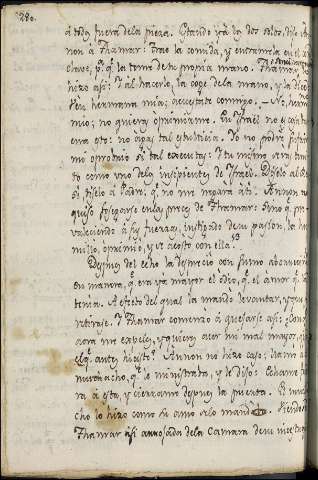 280.
à todos fuera dela pieza. Estando yà los dos solos, dijo Am
non à Thamar: trae la comida, y entramela en el
clave, pª qᵉ la tome de tu propia mano. Thamar
hizo asi: I al hacerlo, la coge dela mano, y la dice
Ven hermana mia; acuestate conmigo. _ No, herma
mio; no quieras oprimirme. En Israël no es
esto: no hagas tal estulticia. Io no podrè
mi oprobrio si tal executas: I tu mismo seras tam
to como uno delos insipientes de Israël.
si diselo à Padre, qᵉ no me negarà à ti. Amnon no
quiso sosegarse enlas preces de Thamar: sino qᵉ pre
valeciendo à sus fuerzas, instigado de su pasion, la hu
millò, oprimiò, y se acostò con ella.
Despues del echo la despreciò con sumo aborrecim
en manera, qᵉ era yà mayor el odio, qᵉ el amor qᵉ la
tenia. A efecto del qual la mandò levantar, y que
retirase. I Thamar comenzò à quejarse asi:
aora me expeles, y quieres acer mi mal mayor, qᵉ
elqᵉ antes hiciste? Amnon no hizo caso: llamò a
muchacho, qᵉ le ministrava, y le dijo: Echame fue
ra à esta, y cierra despues la puerta. El mucha
cho lo hizo como su amo selo mandò. Viendose
Thamar asi arrojada dela Camara de su